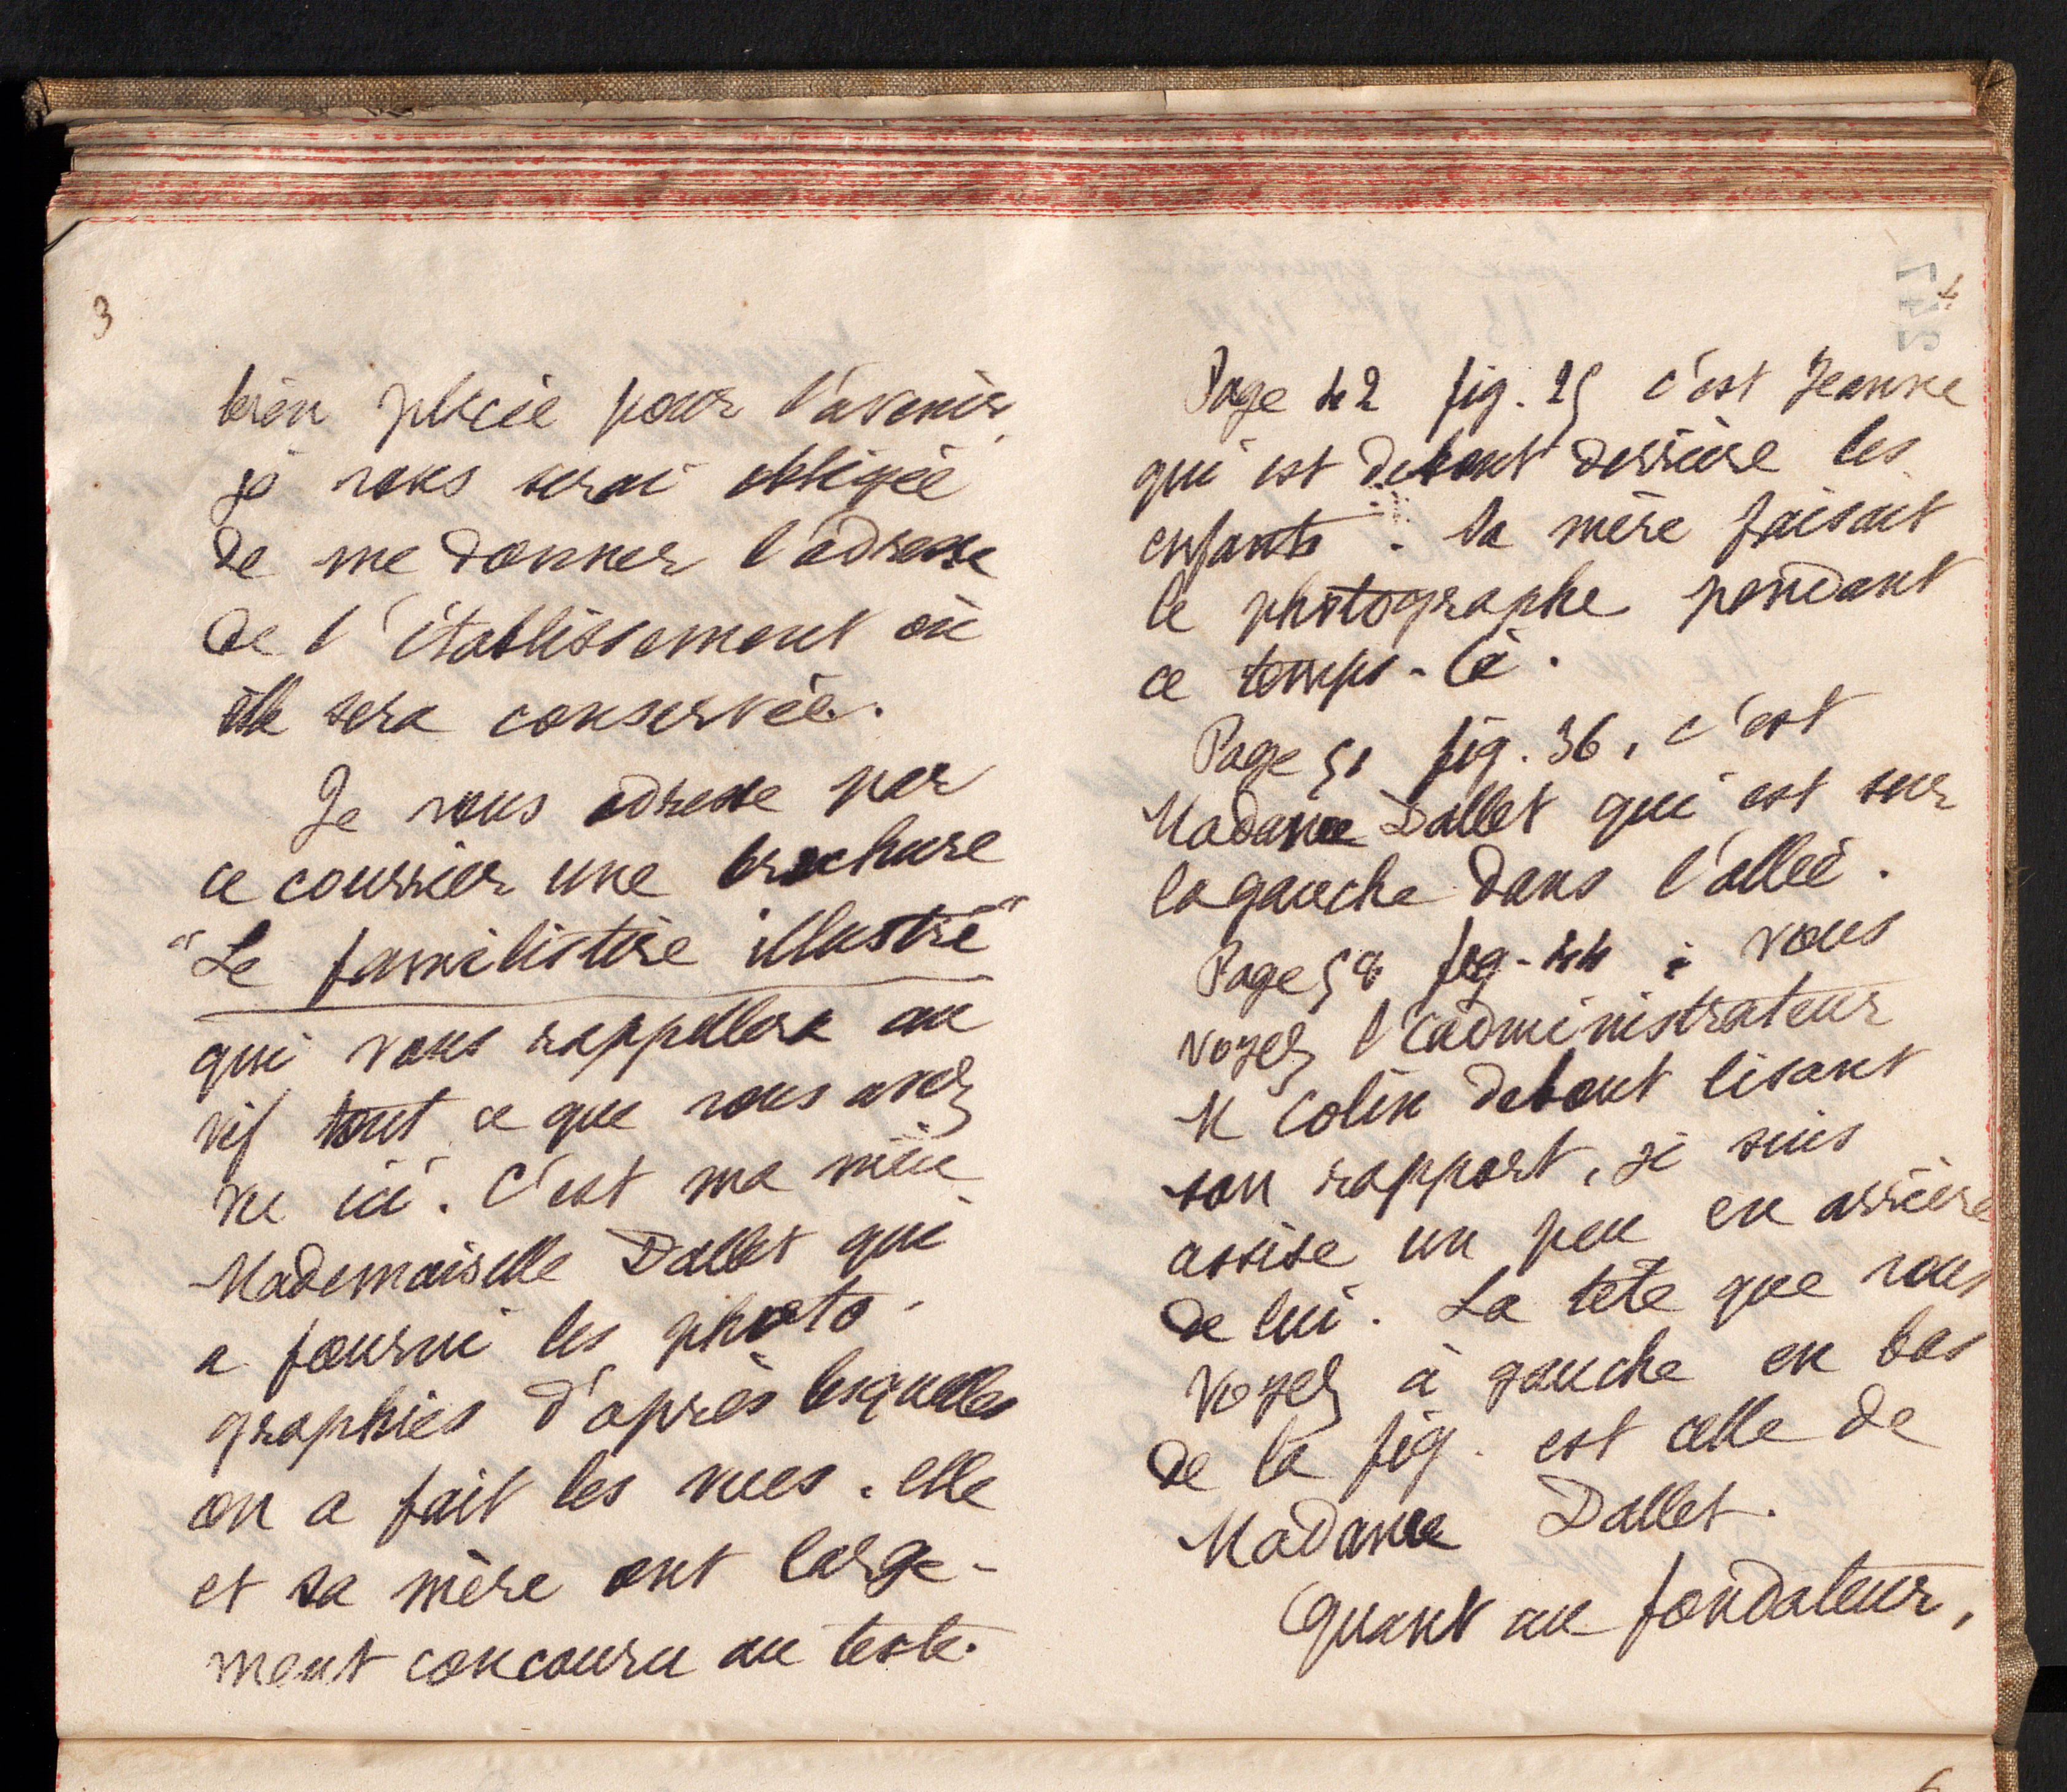 3
bien placée pour l'avenir,
je vous serai obligée
de me donner l'adresse
de l'établissement où
elle sera conservée.
Je vous adresse par
ce courrier une brochure
"Le familistère illustré"
qui vous rappellera au
vif tout ce que vous avez
vu ici. C'est ma nièce
Mademoiselle Dallet qui
a fourni les photo-
graphies d'après lesquelles
on a fait les vues. elle
et sa mère ont large-
ment concouru au texte.
4
Page 42 fig. 25 c'est Jeanne
qui est debout derrière les
enfants. Sa mère faisait
le photographe pendant
ce temps-là.
Page 51 fig. 36, c'est
Madame Dallet qui est sur
la gauche dans l'allée.
Page 58 fig. 44 : vous
voyez l'administrateur
M Colin debout lisant
son rapport, je suis
assise un peu en arrière
de lui. La tête que vous
voyez à gauche en bas
de la fig. est celle de
Madame Dallet.
Quant au fondateur,